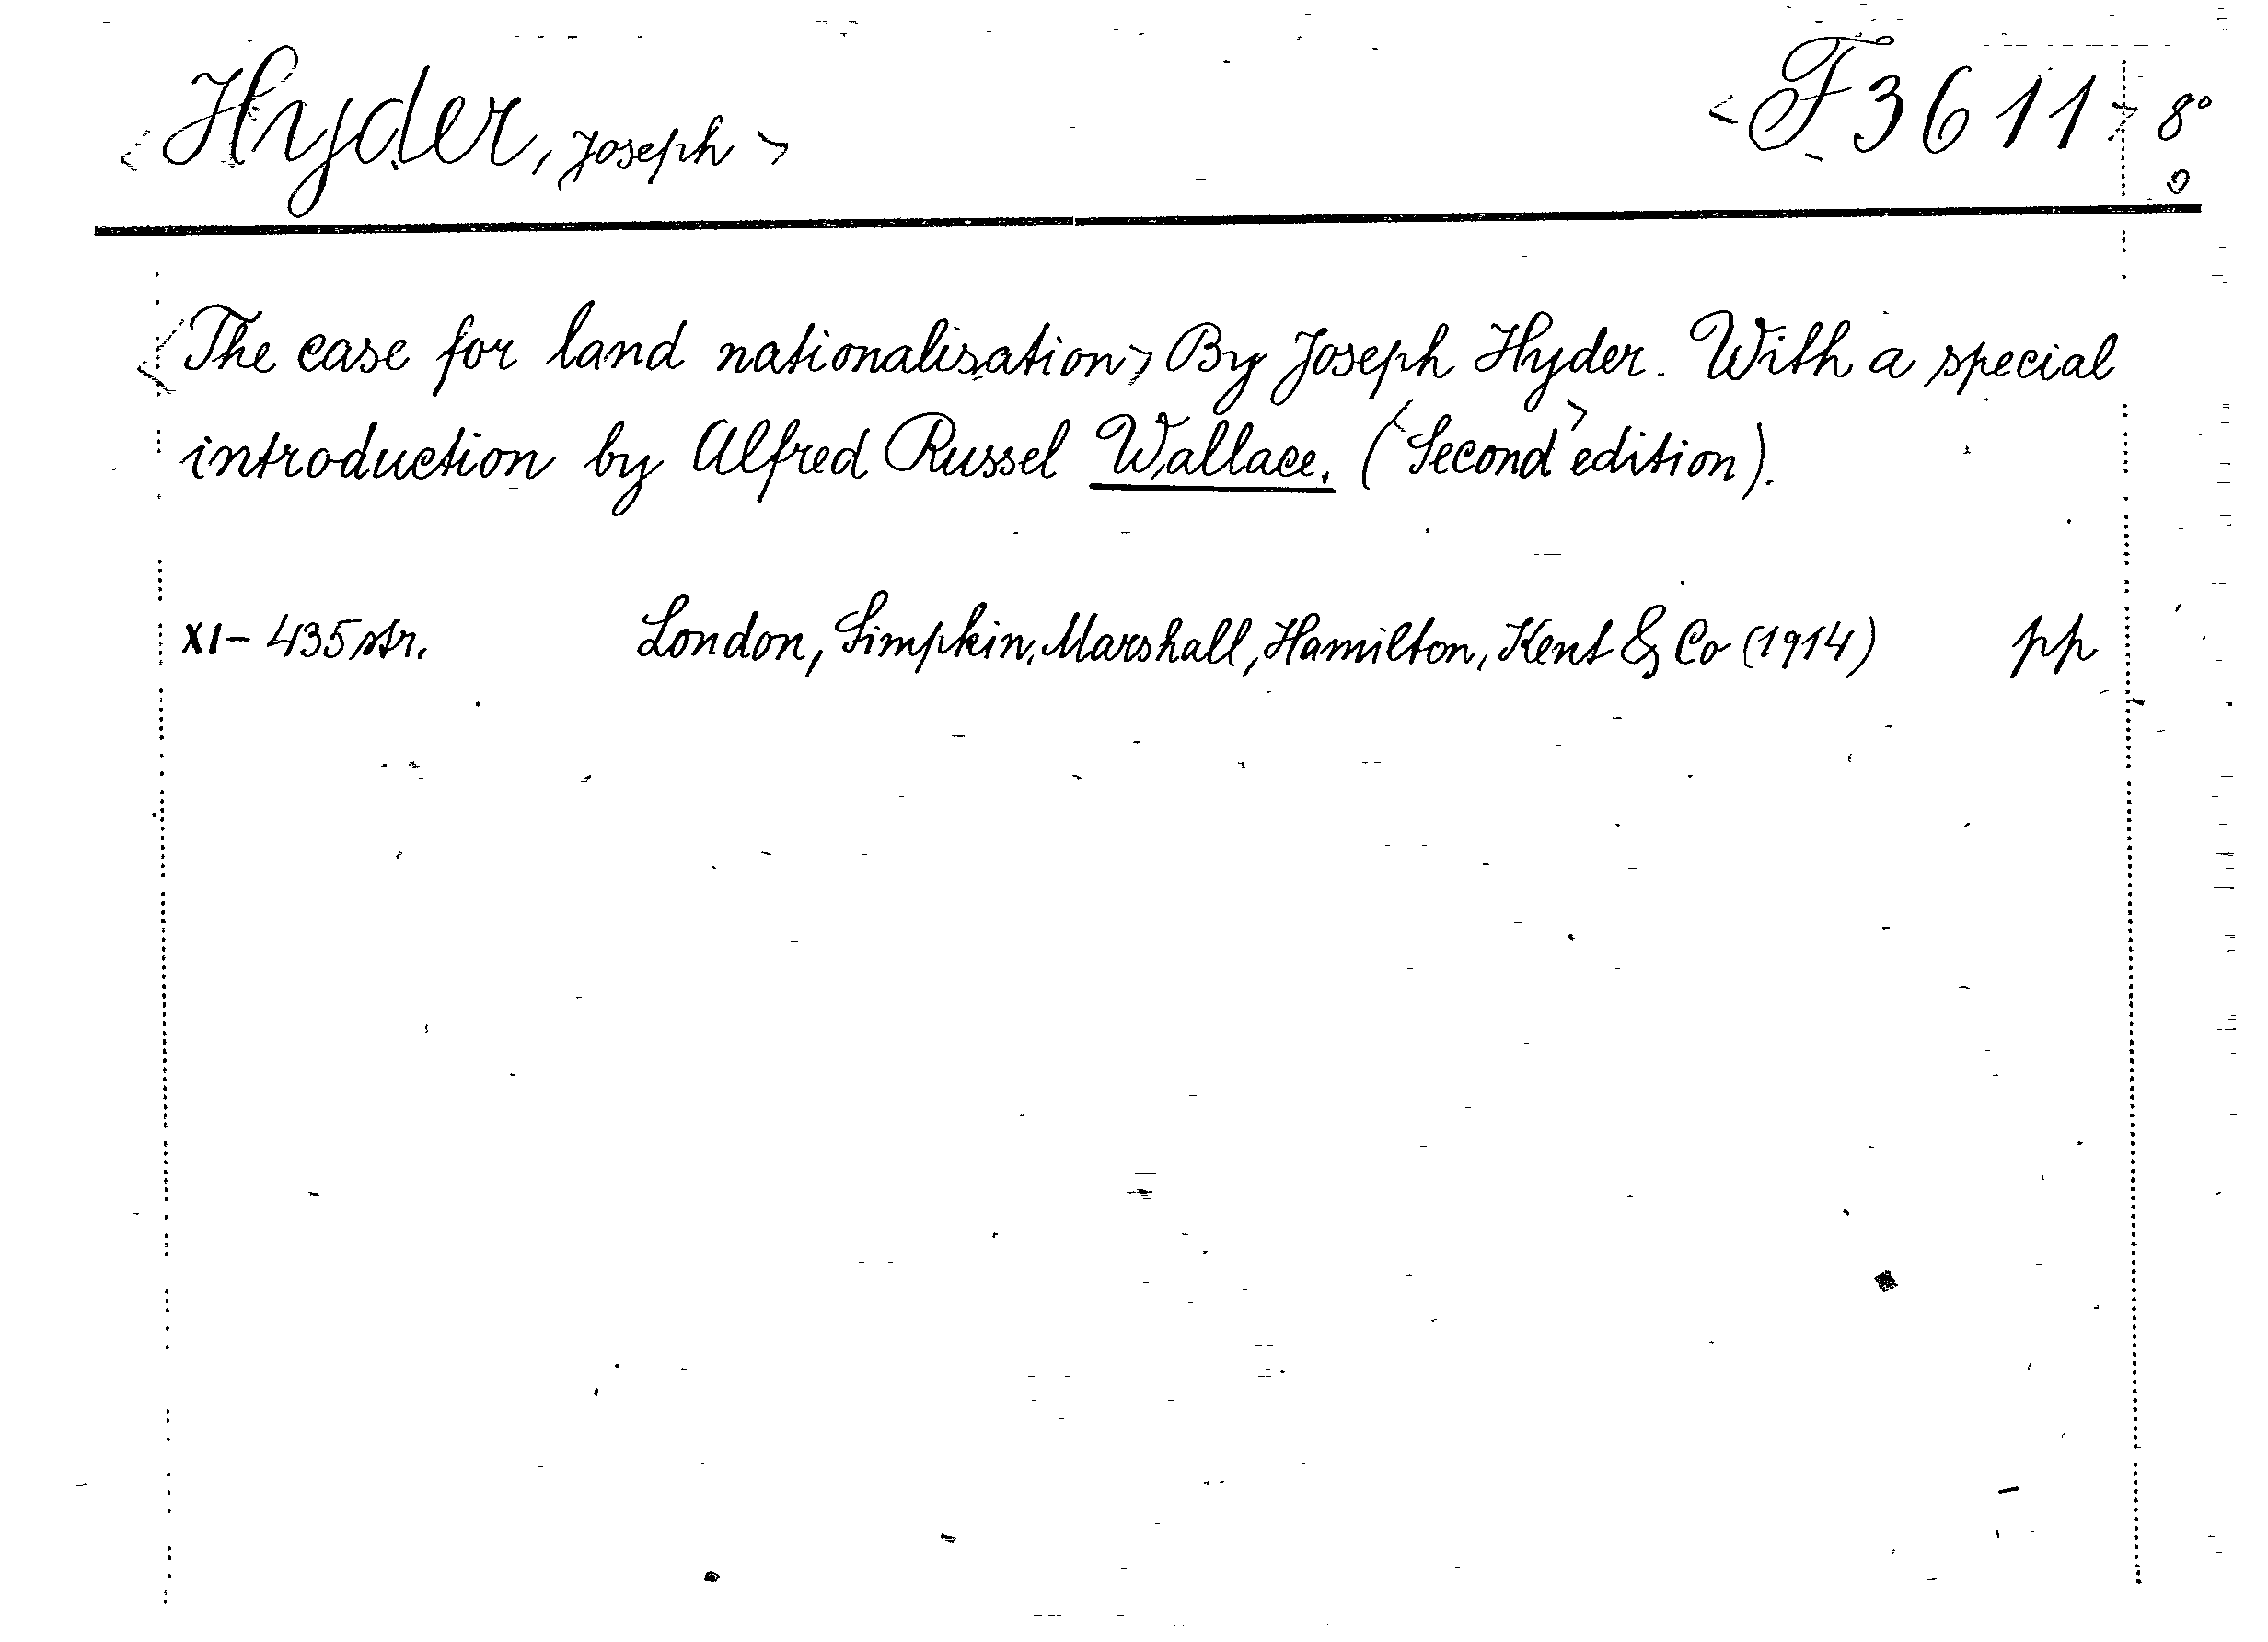 <Hyder, Joseph> <F 3611> 8°
<The case for land nationalisation> By Joseph Hyder. With a special
introduction by Alfred Russel Wallace. (<Second> edition).
XI - 435 str. London, Simpkin, Marshall, Hamilton, Kent & Co (1914) pp